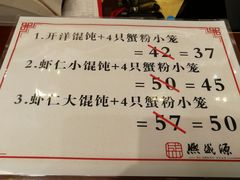 1.开洋馄饨+4只蟹粉小笼
= 42 = 37
2.虾仁小馄饨+4只蟹粉小笼
= 50 = 45
3.虾仁大馄饨+4只蟹粉小笼
= 57 = 50
熙盛源